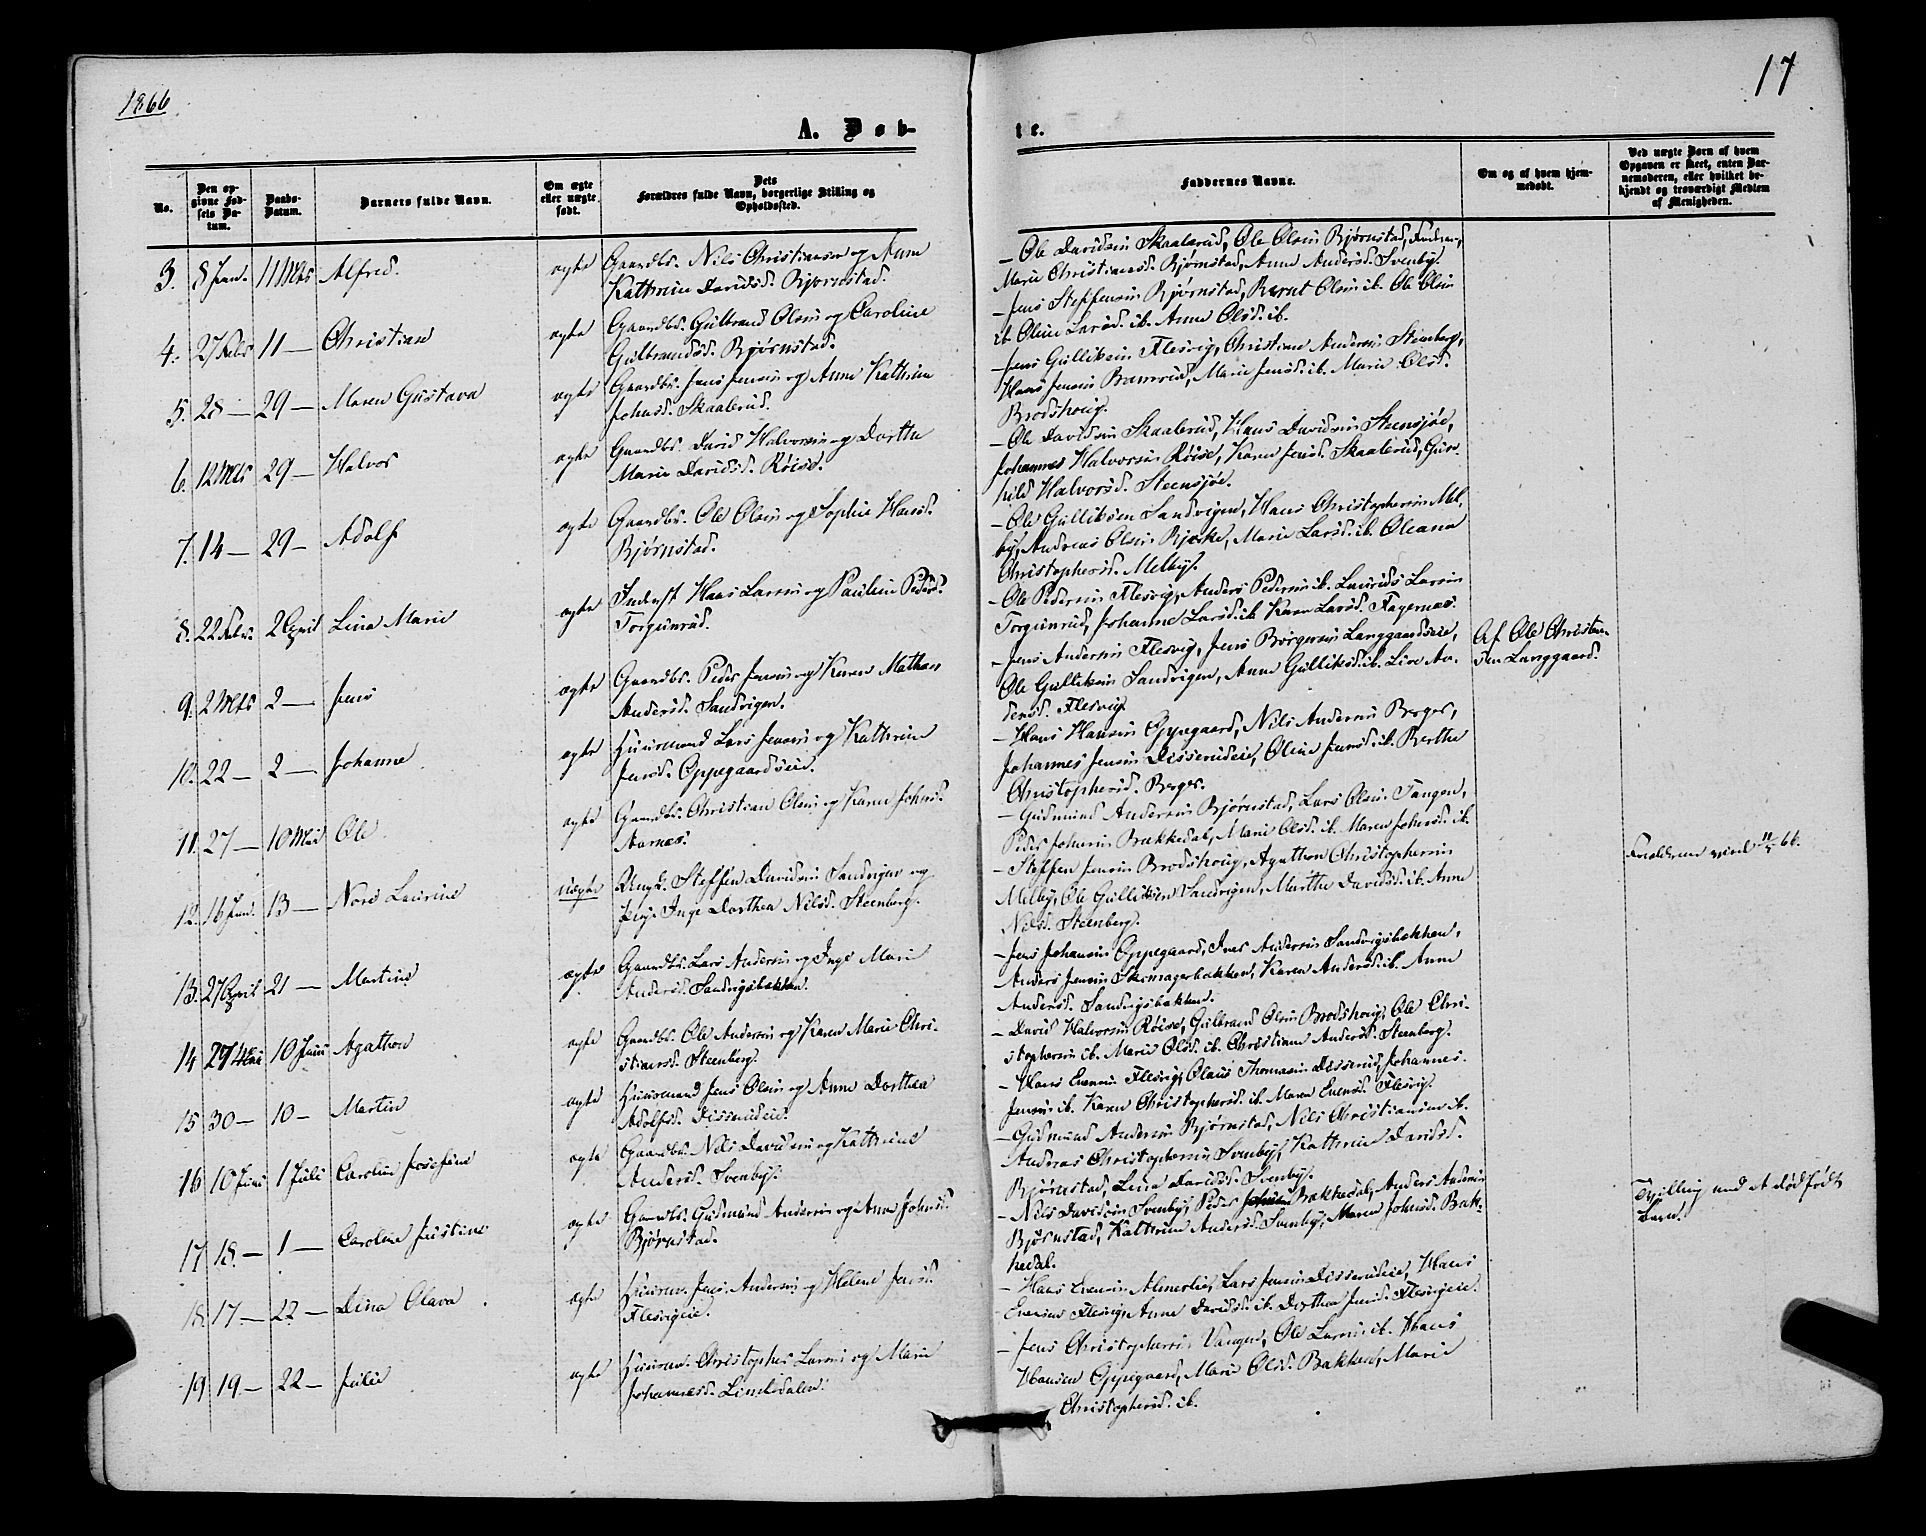 1866
17
A. Døb-
te.
No.
Den op-
givne Fød-
sels Da-
tum.
Daabs-
Datum.
Barnets fulde Navn.
Om ægte
eller uægte
født.
Dets
Forældres fulde Navn, borgerlige Stilling og
Opholdssted.
Faddernes Navne.
Om og af hvem hjem-
medøbt.
Ved uægte Børn af hvem
Opgaven er skeet, enten Bar-
nemoderen, eller hvilket be-
kjendt og troværdigt Medlem
af Menigheden.
3. 8 Jan. 11 Mts Alfred. ægte Gaardbr. Nils Christiansen og Anne
Kathrine Davidsd. Bjørnstad.
— Ole Davidsen Skaalerud, Ole Olsen Bjørnstad,
Marie Christiansd. Bjørnstad, Anne Andersd. Svenby.
4. 27 Febr 11 — Christian ægte Gaardbr. Gulbrand Olsen og Caroline
Gulbrandsd. Bjørnstad.
— Jens Steffensen Bjørnstad, Bernt Olsen ib. Ole Olsen
ib Oline Larsd. ib. Anne Olsd. ib.
5. 28 — 29 — Maren Gustava ægte Gaardbr. Jens Jensen og Anne Kathrine
Johnsd. Skaalerud.
— Jens Gulliksen Flesvig, Christian Andersen Steenberg,
Hans Jensen Bamrud, Marie Jensd. ib. Marie Olsd.
Brodshoug.
6. 12 Mts 29 — Halvor ægte Gaardbr. David Halvorsen og Dorthe
Marie Davidsd. Röise.
— Ole Davidsen Skaalerud, Hans Davidsen Steensjøe,
Johannes Halvorsen Röise, Karen Jensd. Skaalerud, Gun-
hild Halvorsd. Steensjøe.
7. 14 — 29 — Adolf ægte Gaardbr. Ole Olsen og Sophie Hansd.
Bjørnstad.
— Ole Gulliksen Sandvigen, Hans Christophersen Mel-
by, Andreas Olsen Bjerke, Marie Larsd. ib. Oleana
Christophersd. Melby.
8. 22 Febr. 2 April Lina Marie ægte Inderst Hans Larsen og Pauline Pedersd.
Torgunrud.
— Ole Pedersen Flesvig, Anders Pedersen ib. Laurids Larsen
Torgunrud, Johanne Larsd. ib Karen Larsd. Fagernæs.
9. 2 Mts 2 — Jens ægte Gaardbr. Peder Jensen og Karen Mathea
Andersd. Sandvigen.
— Jens Andersen Flesvig, Jens Børgersen Langgaardseie,
Ole Gulliksen Sandvigen, Anne Gulliksd. ib. Lise An-
densd. Flesvig
Af Ole Christen-
sen Langgaard.
10. 22 — 2 — Johanne ægte Huusmand Lars Jensen og Kathrine
Jensd. Oppegaardseie.
— Hans Hansen Oppegaard, Nils Andersen Berger,
Johannes Jensen Disserudeie, Oline Jensd. ib. Berthe
Christophersd. Berger.
11. 27 — 10 Mai Ole ægte Gaardbr. Christian Olsen og Karen Johnsd.
Aarnes.
— Gudmund Andersen Bjørnstad, Lars Olsen Tangen,
Peder Johnsen Bakkedal, Marie Olsd. ib. Maren Johnsd. ib.
12. 16 Jan. 13 — Nora Laurine uægte Ungk. Steffen Davidsen Sandvigen og
Pige Inge Dorthea Nilsd. Steenberg.
— Steffen Jensen Brodshoug, Agathon Christophersen
Melby, Ole Gulliksen Sandvigen, Marthe Davidsd. ib. Anne
Nilsd. Steenberg.
Forældrene viede 11/5 66.
13. 27 April 21 — Martin ægte Gaardbr. Lars Andersen og Inge Marie
Andersd. Sandvigsbakken.
— Jens Johansen Oppegaard, Iver Andersen Sandvigsbakken,
Anders Jensen Skomagerbakken, Karen Andersd. ib. Anne
Andersd. Sandvigsbakken.
14 29 Mai 10 Juni Agathon ægte Gaardbr. Ole Andersen og Karen Marie Chri-
stiansd. Steenberg.
— David Halvorsen Röise, Gulbrand Olsen Brodshoug, Ole Chri-
stophersen ib. Marie Olsd. ib. Christiane Andersd. Steenberg.
15 30 — 10 — Martin ægte Huusmand Jens Olsen og Anne Dorthea
Adolfsd. Disserudeie.
— Hans Evensen Flesvig, Olaus Thomasen Disserud, Johannes
Jensen ib. Karen Christophersd. ib. Maren Evensd. Flesvig.
16 10 Juni 1 Juli Caroline Josefine ægte Gaardbr. Nils Davidsen og Kathrine
Andersd. Svenby.
— Gudmund Andersen Bjørnstad, Nils Christiansen ib.
Andreas Christophersen Svenby, Kathrine Davidsd.
Bjørnstad, Lina Davidsd. Svenby.
17 18. — 1 — Caroline Justine ægte Gaardbr. Gudmund Andersen og Anne Johnsd.
Bjørnstad.
— Nils Davidsen Svenby, Peder Bakkedal, Anders Andersen
Bjørnstad, Kathrine Andersd. Svenby, Maren Johnsd. Bak-
kedal.
Tvilling med et dødfødt
Barn.
18. 17 — 22 — Dina Olava ægte Huusm. Jens Andersen og Helene Jensd.
Flesvigeie.
— Hans Evensen Almerlie, Lars Jensen Disserudeie, Hans
Evensen Flesvig, Anne Davidsd. ib. Dorthea Jensd. Flesvigeie.
19 19 — 22 — Julie ægte Huusm. Christopher Larsen og Marie
Johannesd. Linddalen.
— Jens Christophersen Vangen, Ole Larsen ib. Hans
Hansen Oppegaard, Marie Olsd. Bakken, Marie
Christophersd. ib.